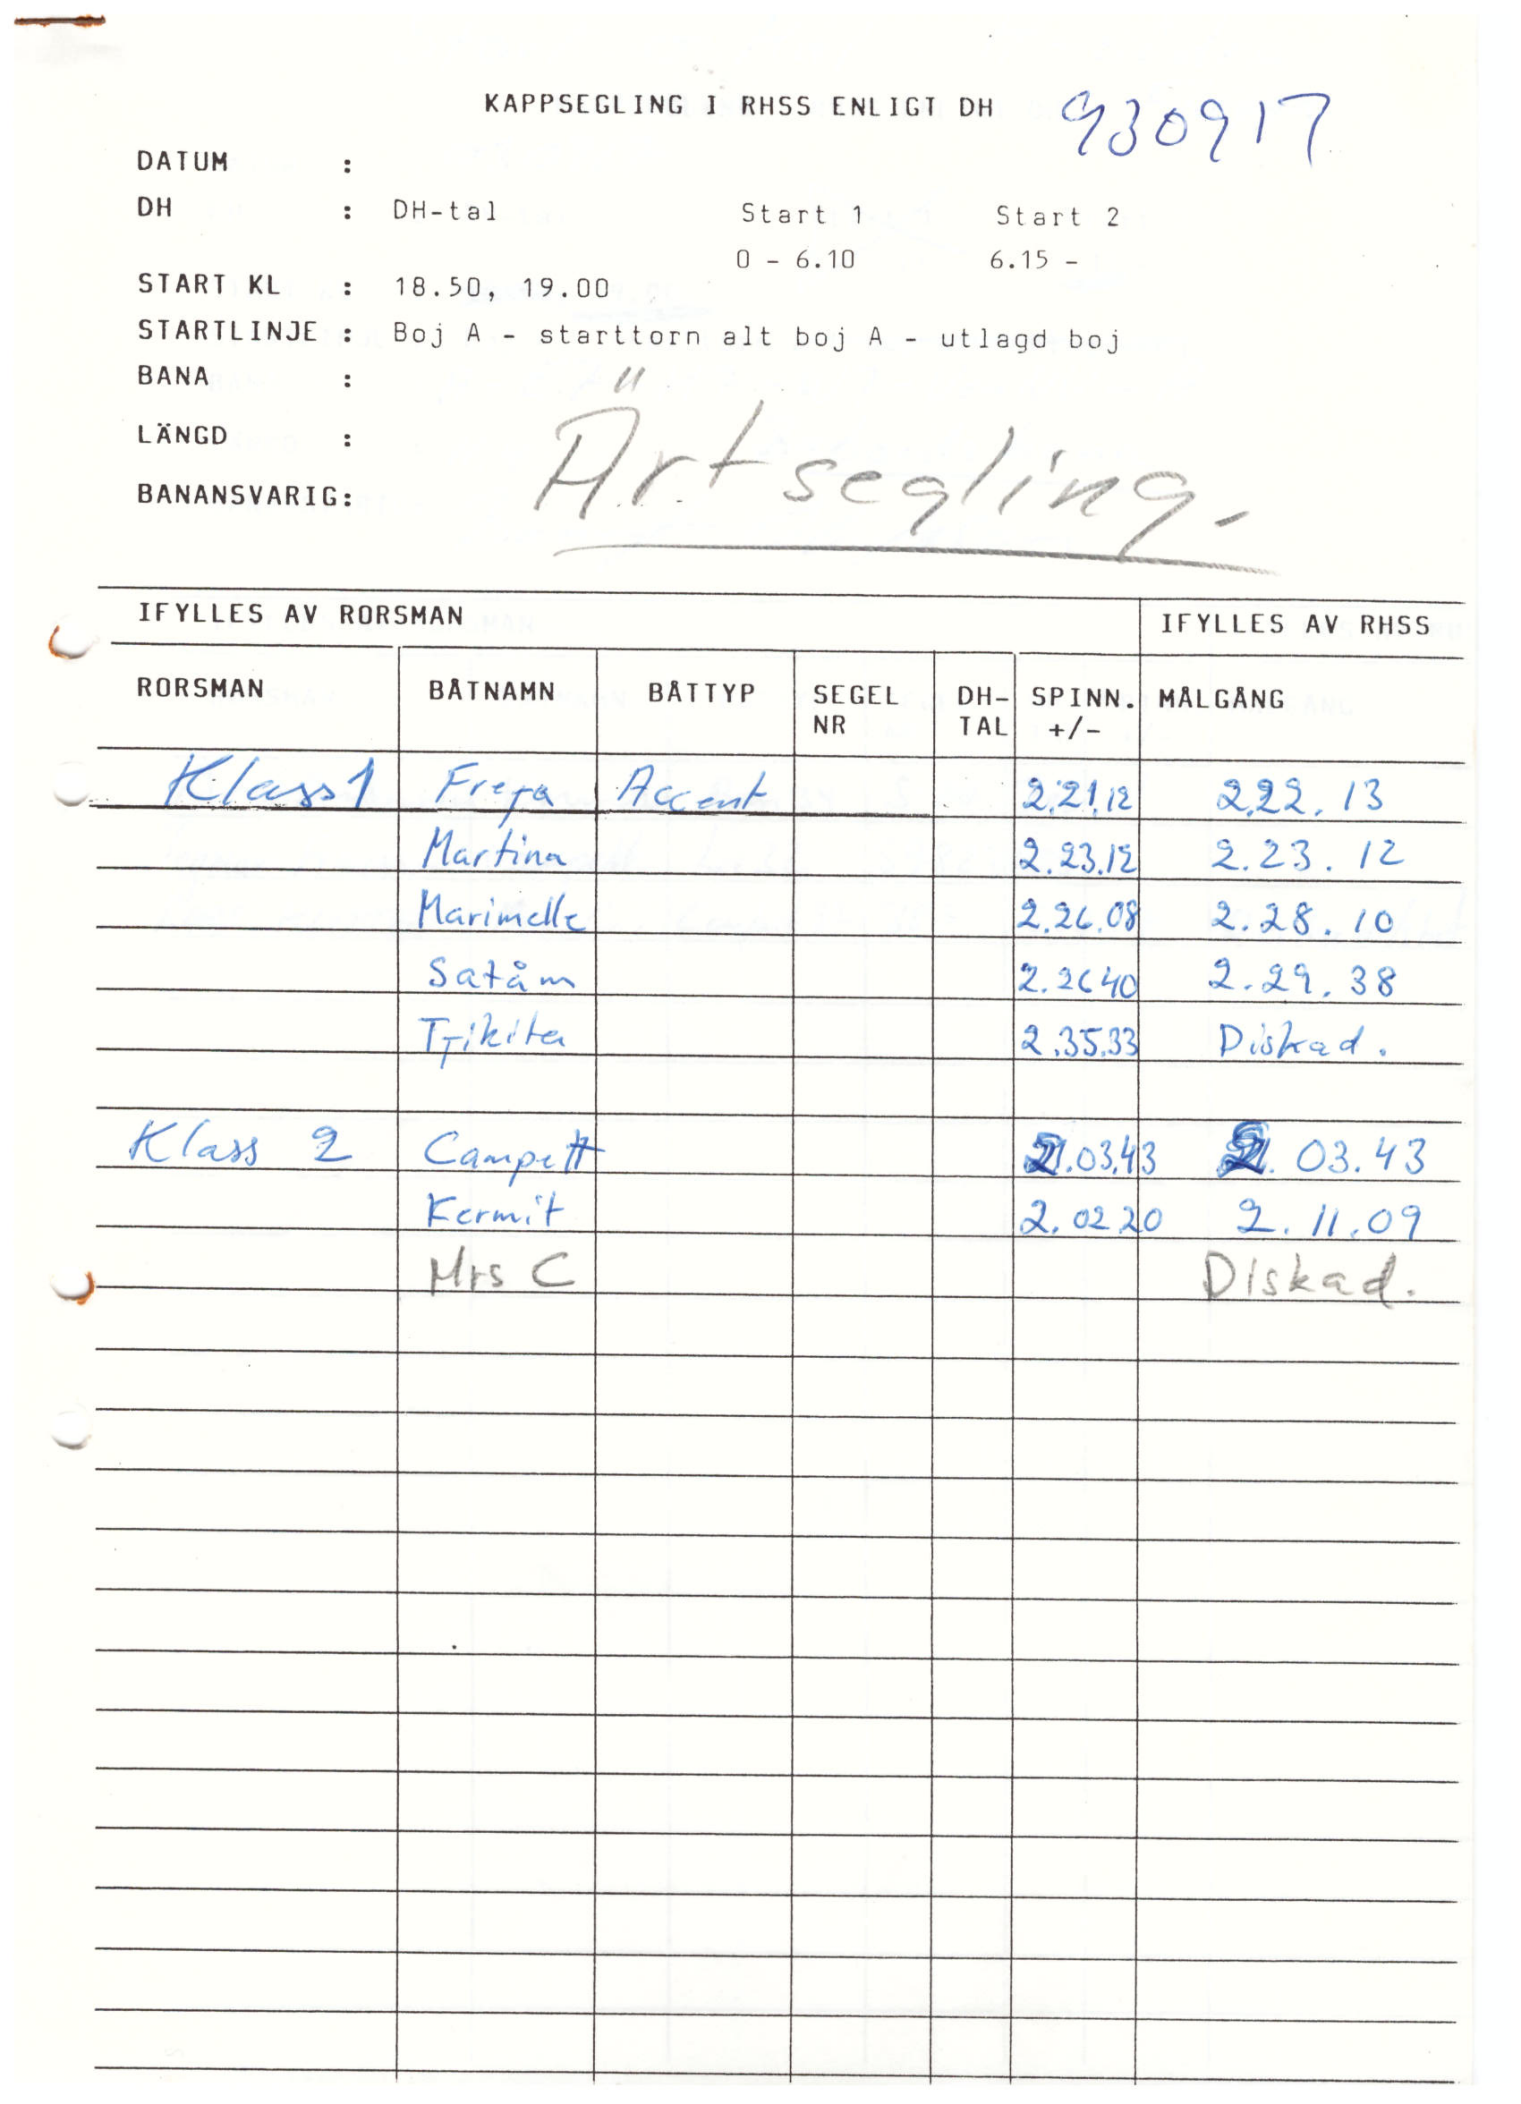 KAPPSEGLING I RHSS ENLIGT DH 930917
DATUM :
DH : DH-tal Start 1 Start 2
0 - 6.10 6.15 -
START KL : 18.50, 19.00
STARTLINJE : Boj A - starttorn alt boj A - utlagd boj
BANA :
LÄNGD :
Ärtsegling.
BANANSVARIG:
IFYLLES AV RORSMAN IFYLLES AV RHSS
RORSMAN BÅTNAMN BÅTTYP SEGEL DH- SPINN. MÅLGÅNG
NR TAL +/-
Klass 1 Freja Accent 2.21.12 2.22.13
Martina 2.23.12 2.23.12
Marimelle 2.26.08 2.28.10
Satåm 2.26 40 2.29.38
Tjikita 2.35.33 Diskad.
Klass 2 Campett .03.43 .03.43
Kermit 2.02 20 2.11.09
Mrs C Diskad.